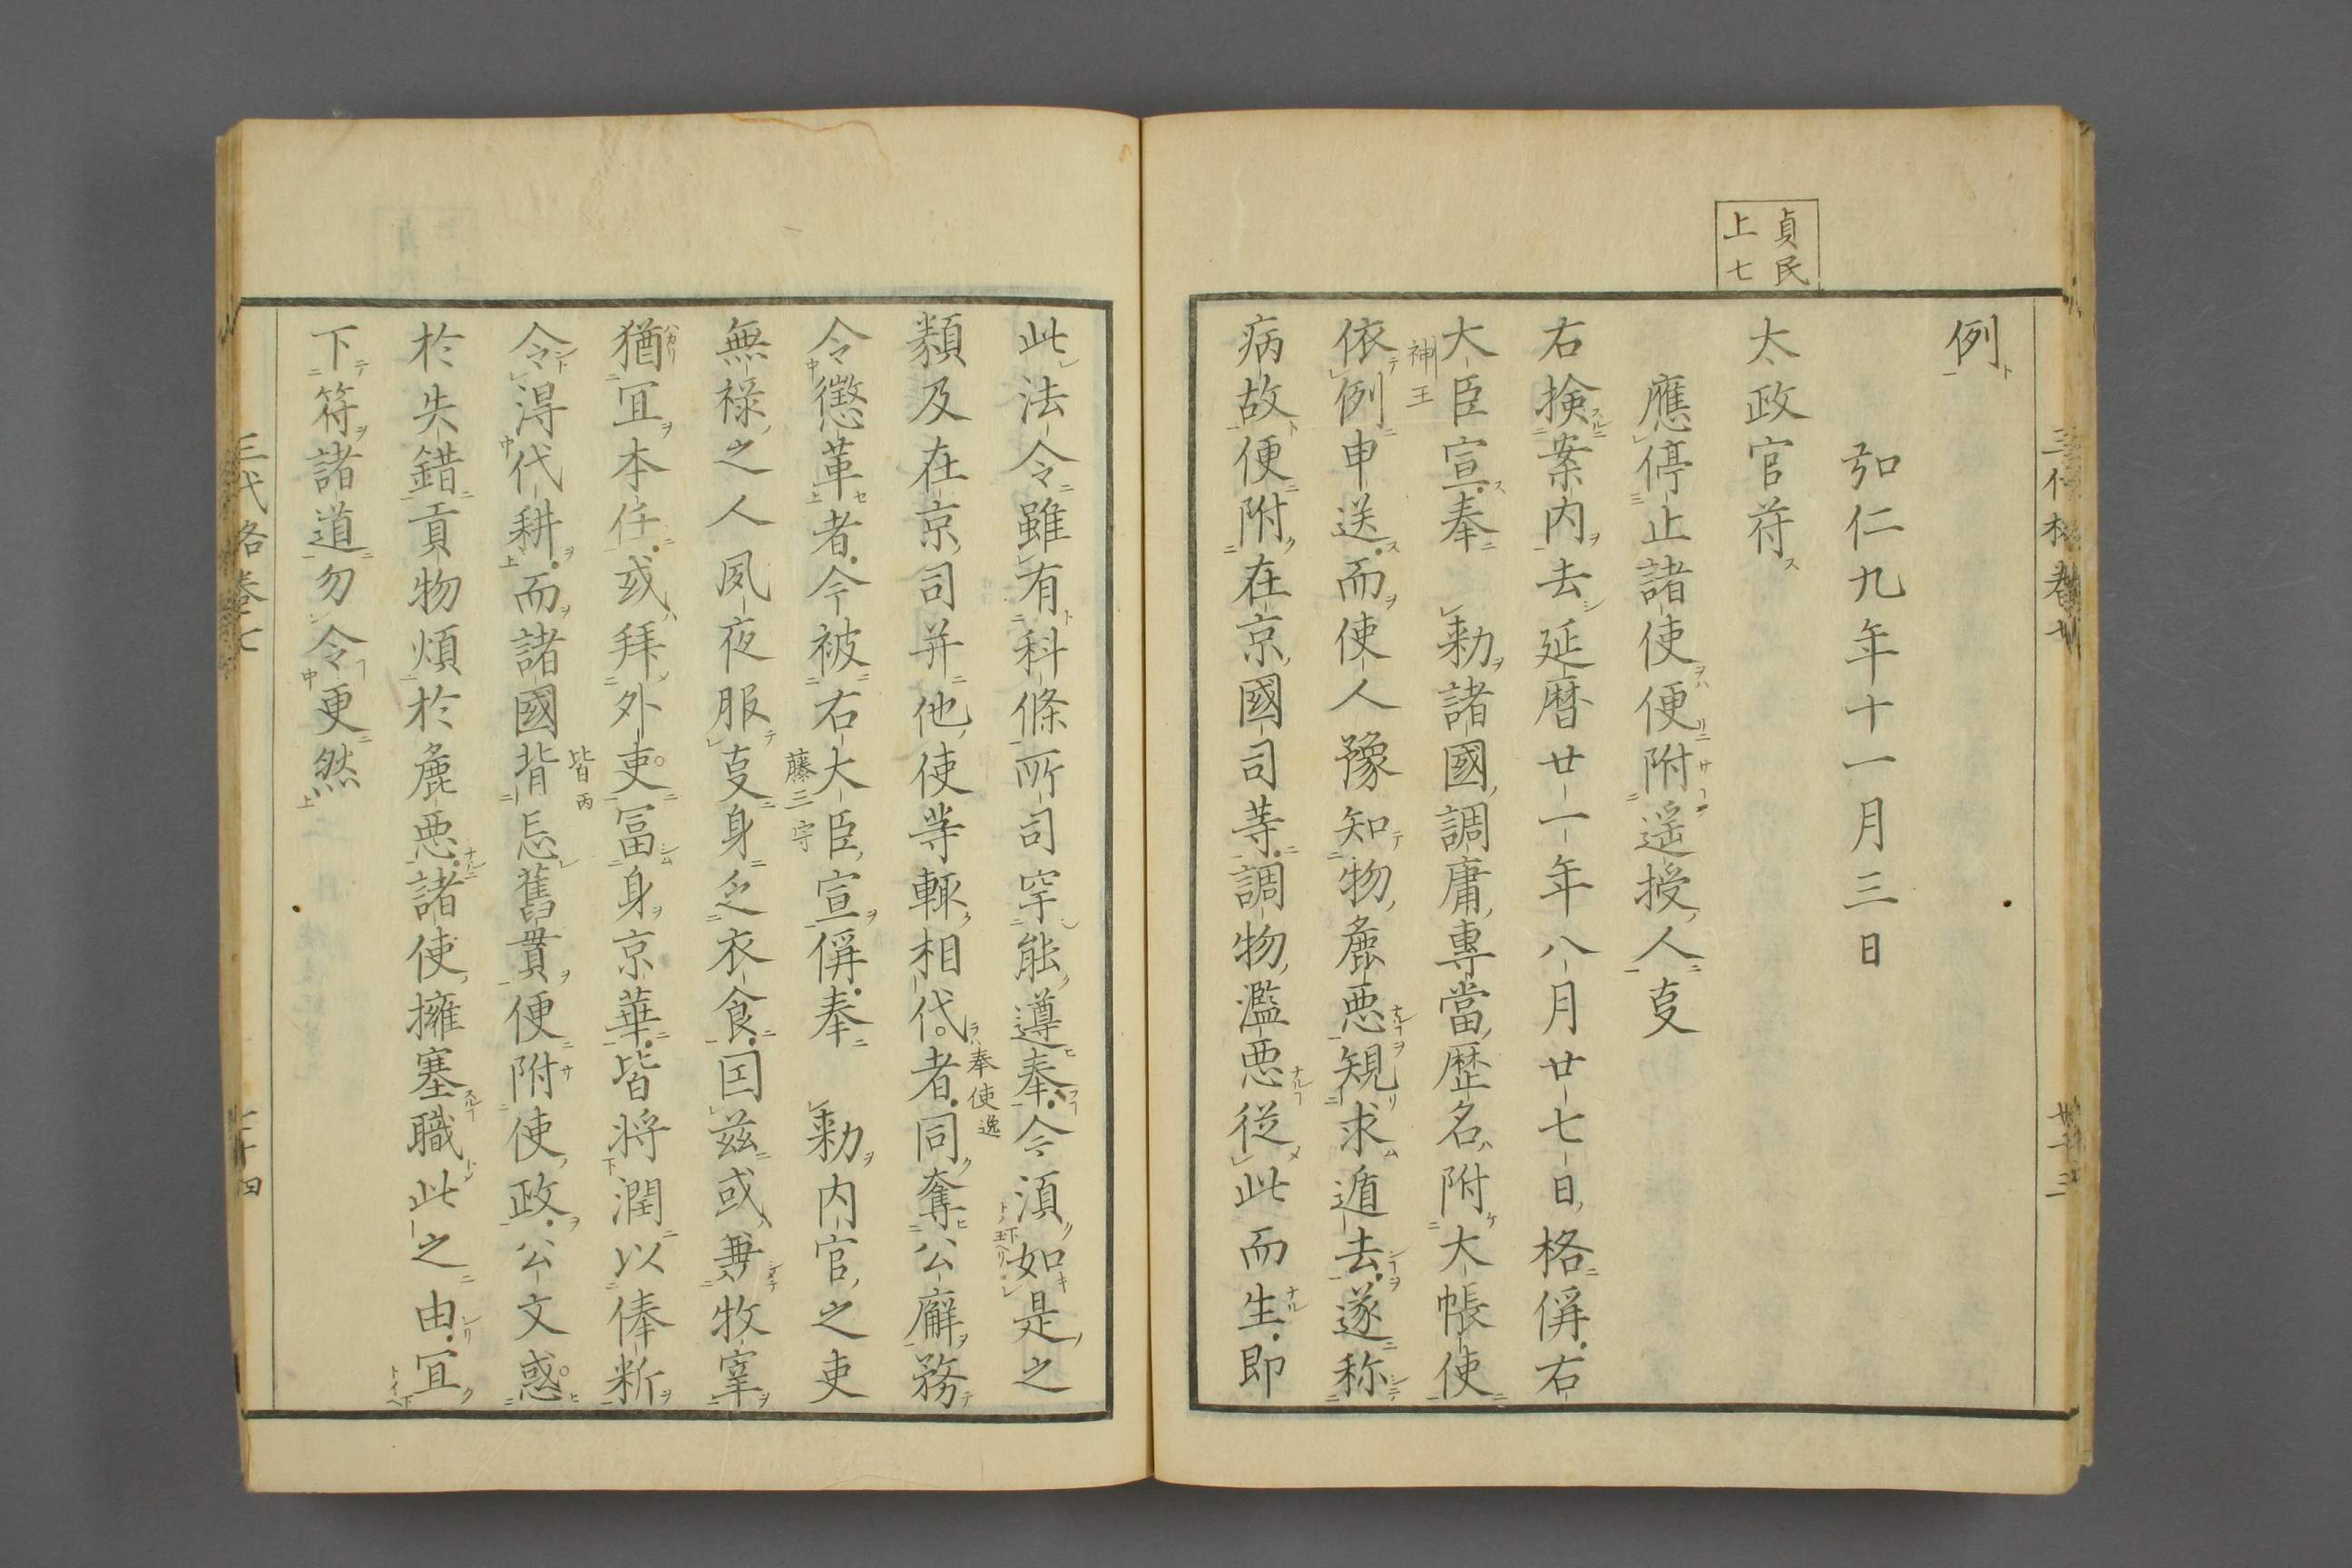 貞民
上七
例
弘仁九年十一月三日
太政官符
應停止諸使便附遥授人㕝
右撿案内去延暦廿一年八月廿七日格偁右
大臣宣奉　勅諸國調庸專當歴名附大帳使
神王
依例申送而使人豫知物麁悪規求遁去遂称
病故便附在京國司等調物濫悪従此而生即
此法令雖有科條所司罕能遵奉今湏如是之
類及在京司并他使等輙相代者同奪公廨務
奉使逸
令懲革者今被右大臣宣偁奉　勅内官之吏
藤三守
無禄之人夙夜服㕝身乏衣食因兹或兼牧宰
猶冝本任或拜外吏冨身京華皆将潤以俸断
皆丙
令淂代耕而諸國背忘舊貫便附使政公文惑
於失錯貢物煩於麁悪諸使擁塞職此之由冝
下符諸道勿令更然